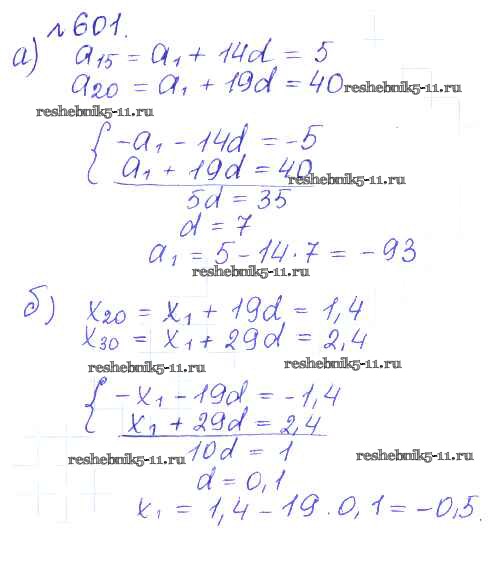 №601.
а) a₁₅ = a₁ + 14d = 5
a₂₀ = a₁ + 19d = 40 reshebnik5-11.ru
reshebnik5-11.ru
{ -a₁ - 14d = -5
a₁ + 19d = 40
reshebnik5-11.ru
5d = 35
d = 7
a₁ = 5 - 14·7 = -93
reshebnik5-11.ru
б) x₂₀ = x₁ + 19d = 1,4
x₃₀ = x₁ + 29d = 2,4
reshebnik5-11.ru reshebnik5-11.ru
{ -x₁ - 19d = -1,4
x₁ + 29d = 2,4
reshebnik5-11.ru 10d = 1 reshebnik5-11.ru
d = 0,1
x₁ = 1,4 - 19·0,1 = -0,5.